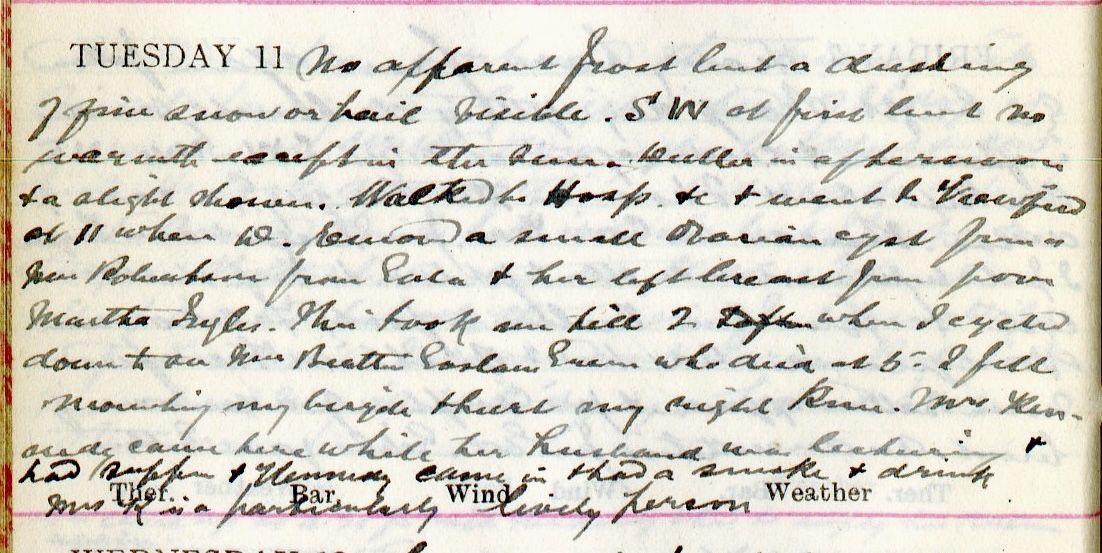 TUESDAY 11 No apparent frost but a dusting
of fine snow or hail visible. SW at first but no
warmth except in the sun. Duller in afternoon
& a slight shower. Walked to Hosp. &c & went to
at 11 when W. removed a small Ovarian cyst from a
Mrs Robertson from & her left breast from poor
Martha Inglis. This took me till 2 when I cycled
down to see Mrs Beattie who died at 5. I fell
mounting my bicycle & hurt my right knee. Mrs Ken-
nedy came here while her husband was lecturing &
had supper & Kennedy came in & had a smoke & drink
Ther. Bar. Wind Weather
Mrs K is a particularly lively person